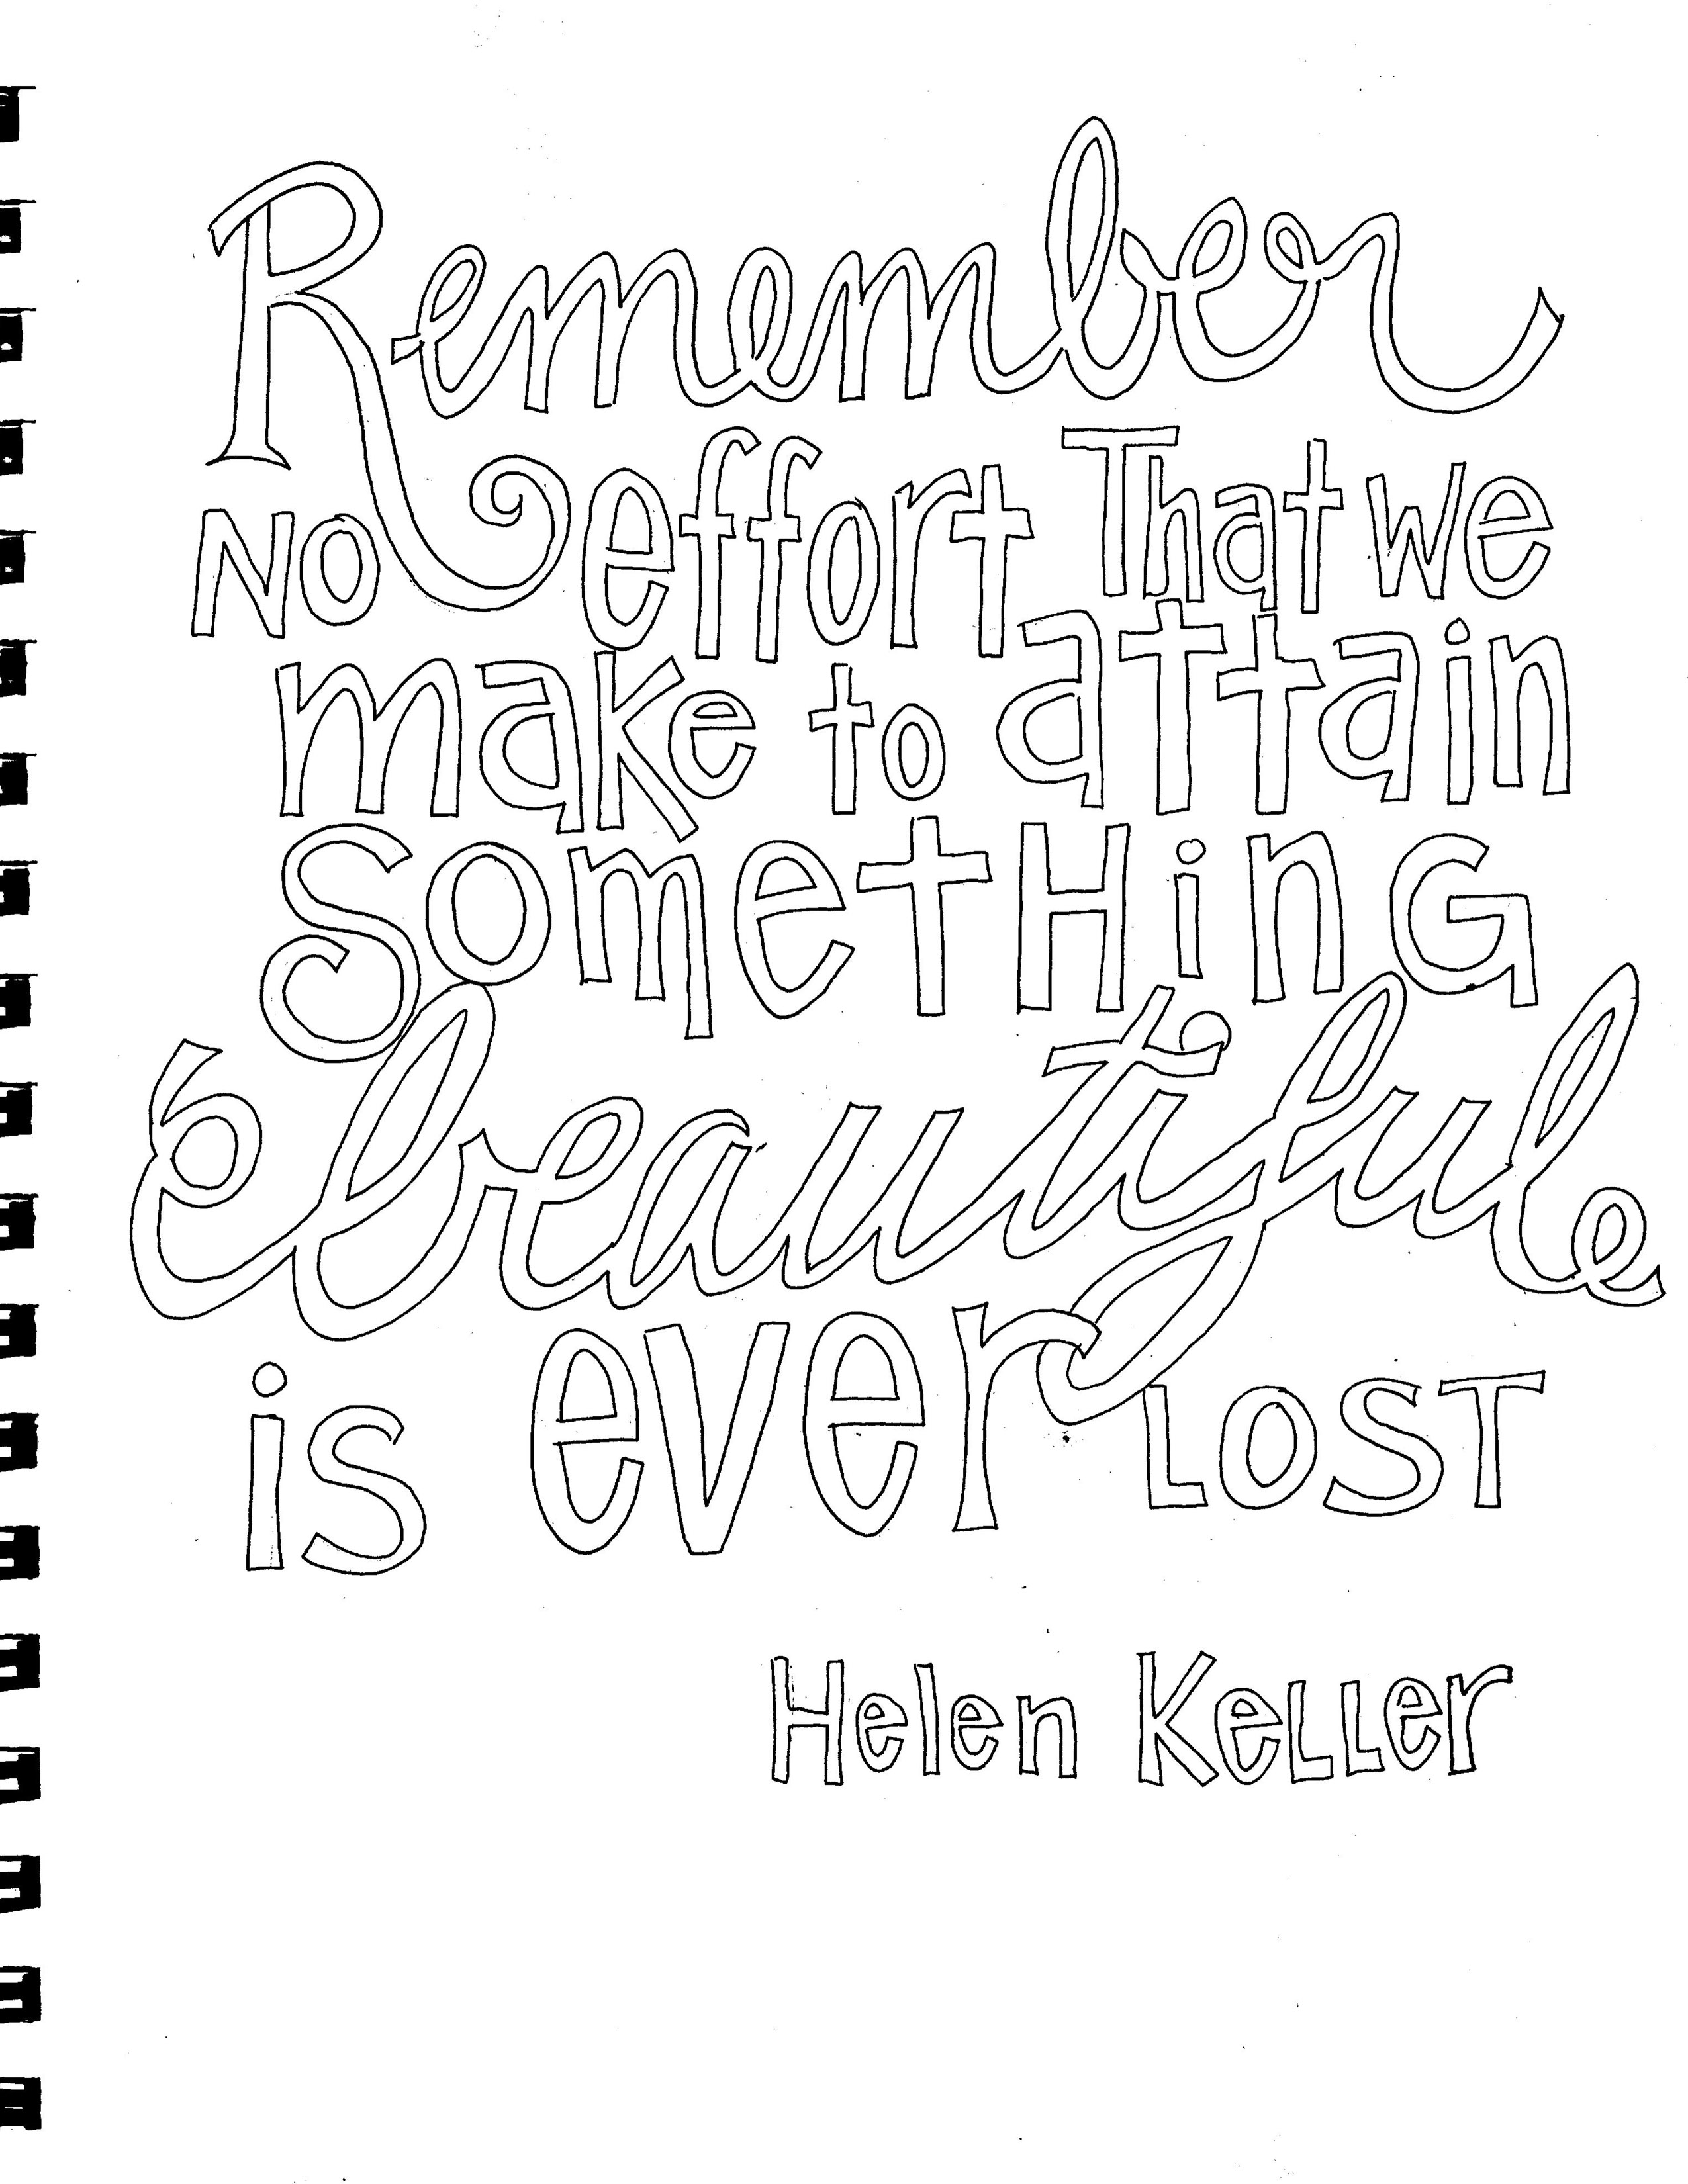 Remember
NO effort That we
make to attain
SometHinG
beautiful
is ever LOST
Helen KeLLer